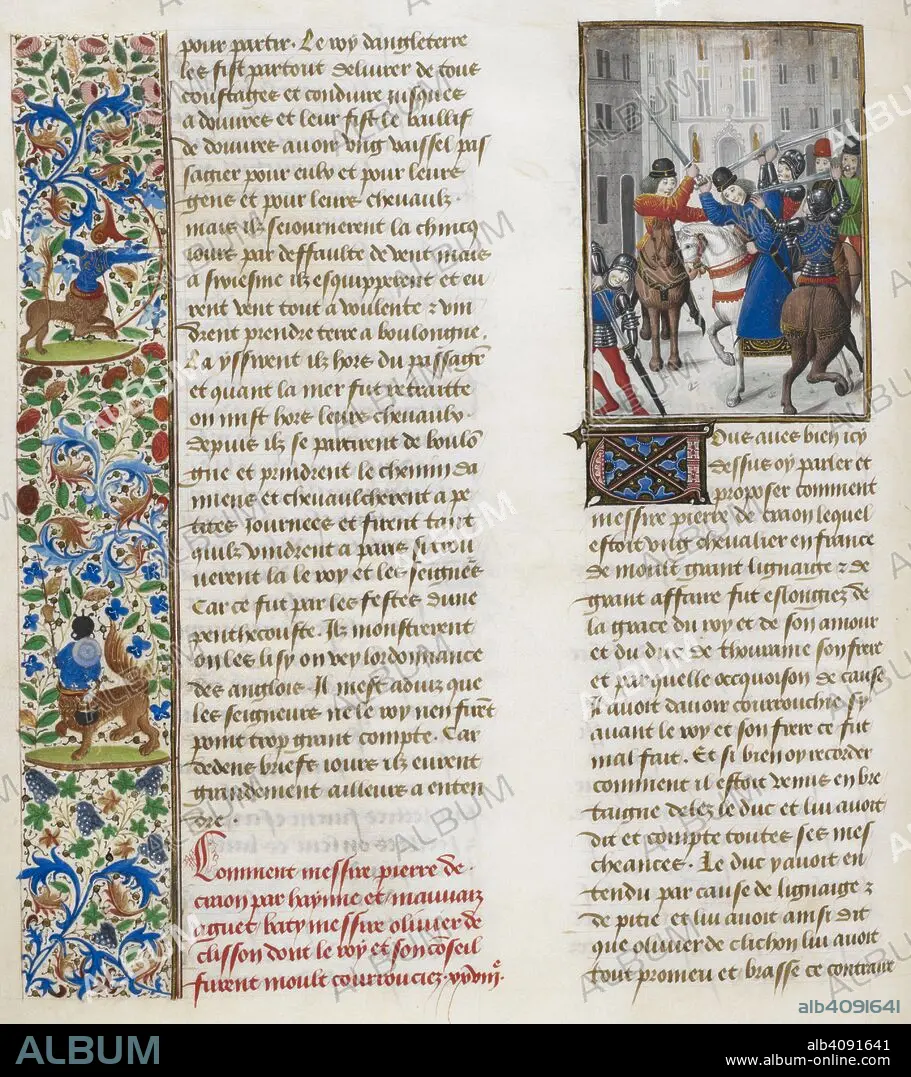 pour partir. Le roy dangleterre
les fist partout delivrer de tous
coustages et conduire jusques
a douvres et leur fist le baillif
de douvres avoir ung vaissel pas
sagier pour eulx et pour leurs
gens et pour leurs chevaulx.
mais ilz seiournerent la chincq
iours par deffaulte de vent mais
a sixiesme ilz esquipperent et eu
rent vent tout a voulente et vin
drent prendre terre a boulongne.
La yssirent ilz hors du passage
et quant la mer fut retraitte
on mist hors leurs chevaulx.
depuis ilz se partirent de boulo
gne et prindrent le chemin da
miens et chevaulcherent a pe
tites Journees et firent tant
quilz vindrent a paris si trou
verent la le roy et les seigneurs
Car ce fut par les festes dune
penthecouste. Ilz monstrerent
on les lisy on vey lordonnance
des anglois. Il mest aduiz que
les seigneurs ne le roy nen firent
point trop grant compte. Car
dedens briefz iours ilz eurent
grandement ailleurs a enten
dre.
Comment messire pierre de
craon par hayme et mauvaiz
aguet baty messire olivier de
clisson dont le roy et son coseil
furent moult courrouciez.
Vous aves bien icy
dessus oy parler et
proposer comment
messire pierre de craon lequel
estoit ung chevalier en france
de moult grant lignaige et de
grant affaire fut eslongiez de
la grace du roy et de son amour
et du duc de thouraine son frere
et par quelle occquoison de cause
Il avoit davoir courrouchie sy
avant le roy et son frere ce fut
mal fait. Et si bien oy recorder
comment il estoit venus en bre
taigne delez le duc et luy avoit
dit et compte toutes ses mes
cheances. Le duc y avoit en
tendu par cause de lignaige et
de pitie et luy avoit ainsi dit
que olivier de clichon luy avoit
tout promeu et brasse ce contraire
alb4091641
ALBUM
alb4091641
www.album-online.com